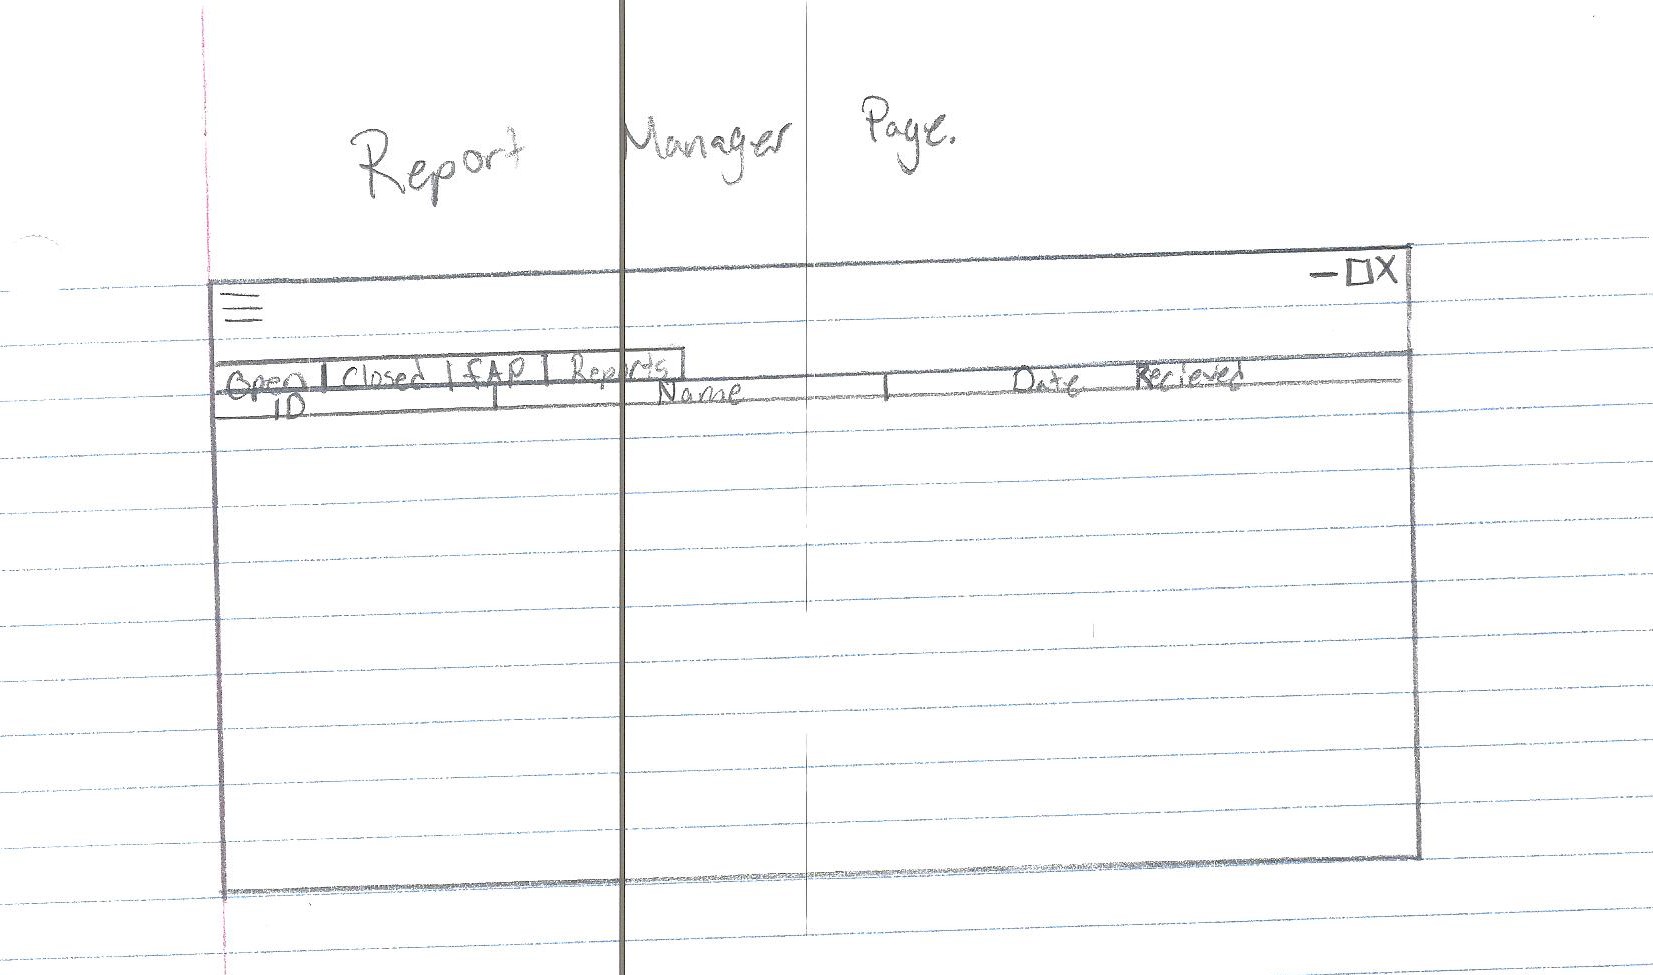 Report Manager Page.
Open Closed CAP Reports
ID Name Date Recieved